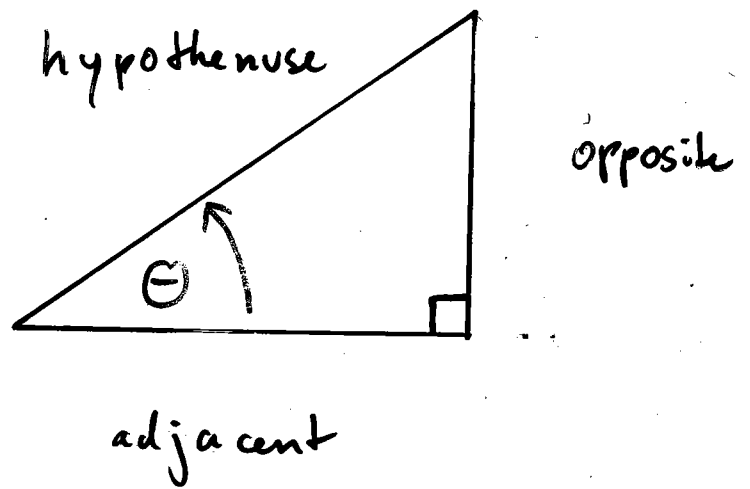 hypothenuse
opposite
θ
adjacent